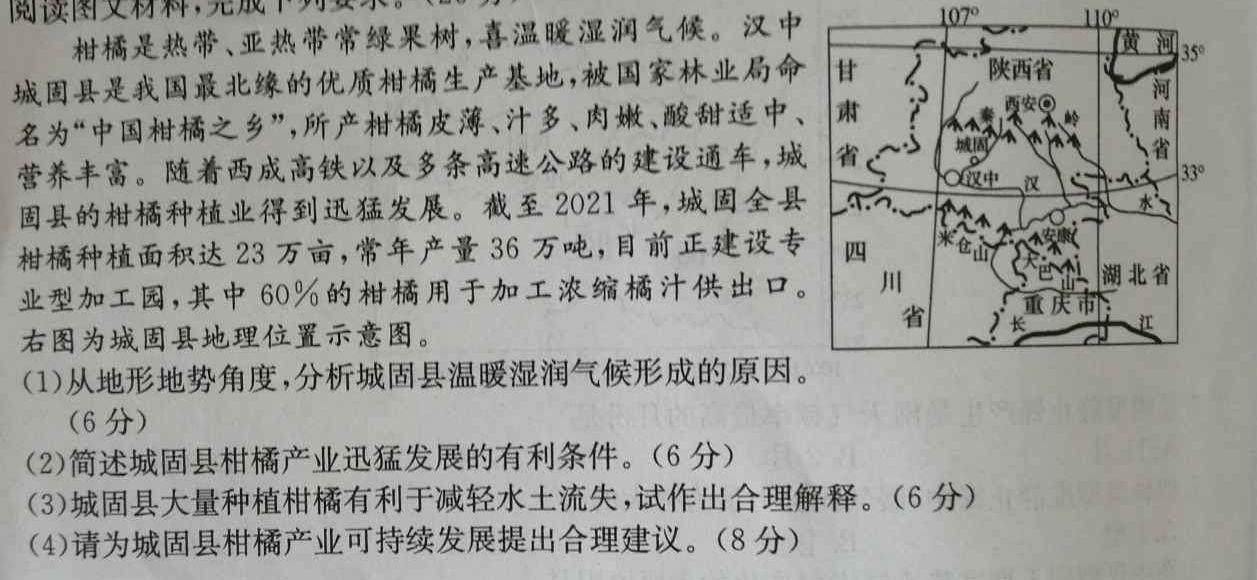 阅读图文材料,完成下列要求。(26分)
柑橘是热带、亚热带常绿果树,喜温暖湿润气候。汉中
城固县是我国最北缘的优质柑橘生产基地,被国家林业局命
名为“中国柑橘之乡”,所产柑橘皮薄、汁多、肉嫩、酸甜适中、
营养丰富。随着西成高铁以及多条高速公路的建设通车,城
固县的柑橘种植业得到迅猛发展。截至2021年,城固全县
柑橘种植面积达23万亩,常年产量36万吨,目前正建设专
业型加工园,其中60%的柑橘用于加工浓缩橘汁供出口。
右图为城固县地理位置示意图。
(1)从地形地势角度,分析城固县温暖湿润气候形成的原因。
(6分)
(2)简述城固县柑橘产业迅猛发展的有利条件。(6分)
(3)城固县大量种植柑橘有利于减轻水土流失,试作出合理解释。(6分)
(4)请为城固县柑橘产业可持续发展提出合理建议。(8分)
107°
110°
黄河
35°
甘肃省
陕西省
河南省
西安
秦岭
城固
33°
汉中
汉水
米仓山
安康
大巴山
四川省
湖北省
重庆市
长江